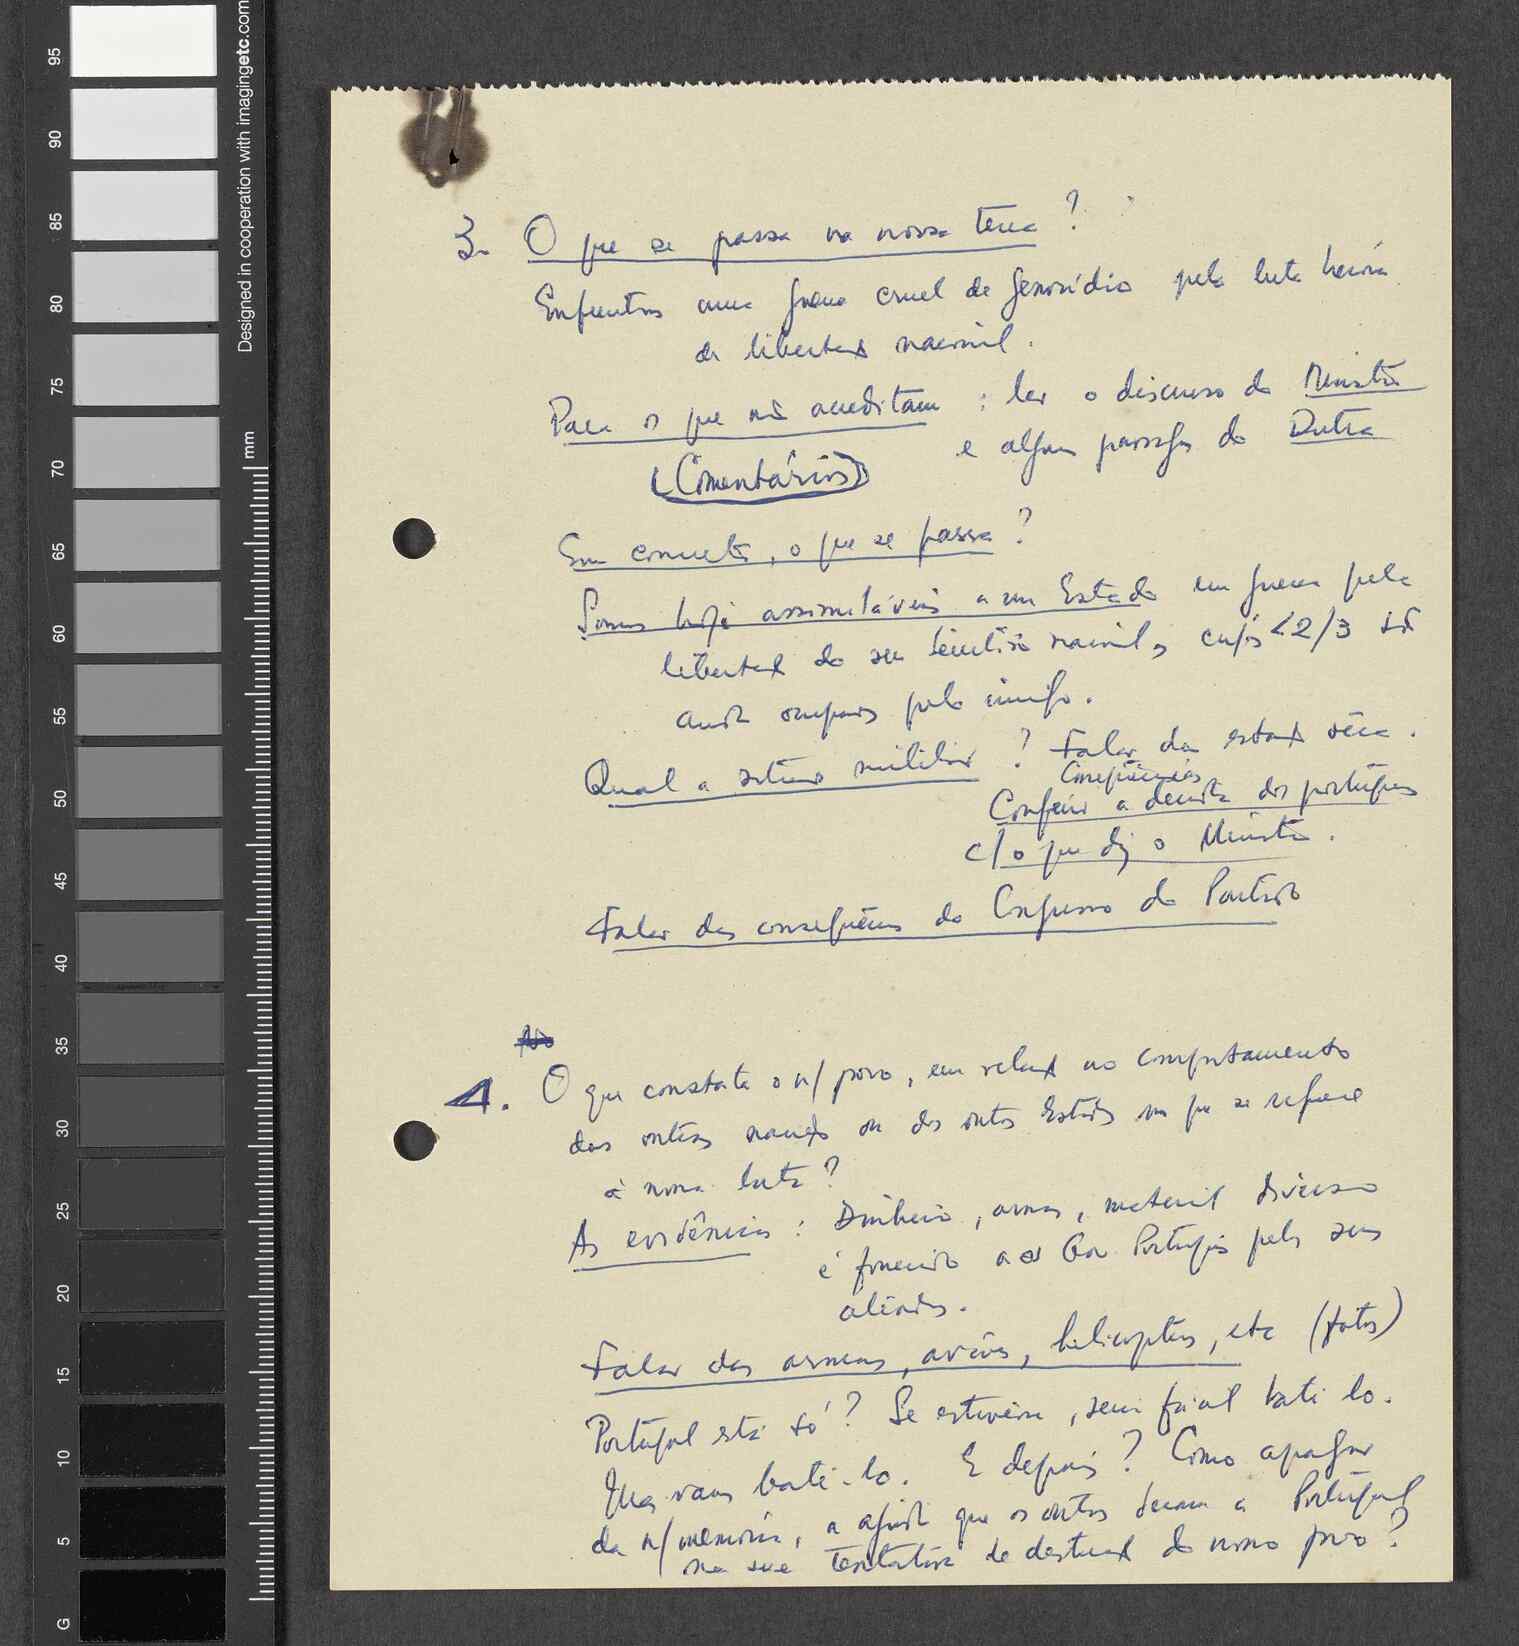 3. O que se passa na nossa terra ?
Enfrentamos uma guerra cruel de genocídio pela luta heróica
de libertação nacional.
Para os que não acreditam : ler o discurso do Ministro
e algumas passagens do Dutra
(Comentários)
Em concreto, o que se passa ?
Somos hoje assimiláveis a um Estado em guerra pela
libertação do seu território nacional, cujos < 2/3 são
ainda ocupados pelo inimigo.
Qual a situação militar ? Falar da estação sêca.
Consequências
Conferir a derrota dos portugueses
c/ o que diz o Ministro.
Falar das consequências do Congresso do Partido
4. O que constata o n/ povo, em relação ao comportamento
das outras nações ou dos outros Estados no que se refere
à nossa luta ?
As evidências : Dinheiro, armas, material diverso
é fornecido ao Gov Português pelos seus
aliados.
Falar das armas, aviões, helicopteros, etc (fotos)
Portugal está só ? Se estivesse, seria fácil batê-lo.
Mas vamos batê-lo. E depois ? Como apagar
da n/ memória, a ajuda que os outros deram a Portugal
na sua tentativa de destruição do nosso povo ?
Designed in cooperation with imagingetc.com
mm
95
90
85
80
75
70
65
60
55
50
45
40
35
30
25
20
15
10
5
G